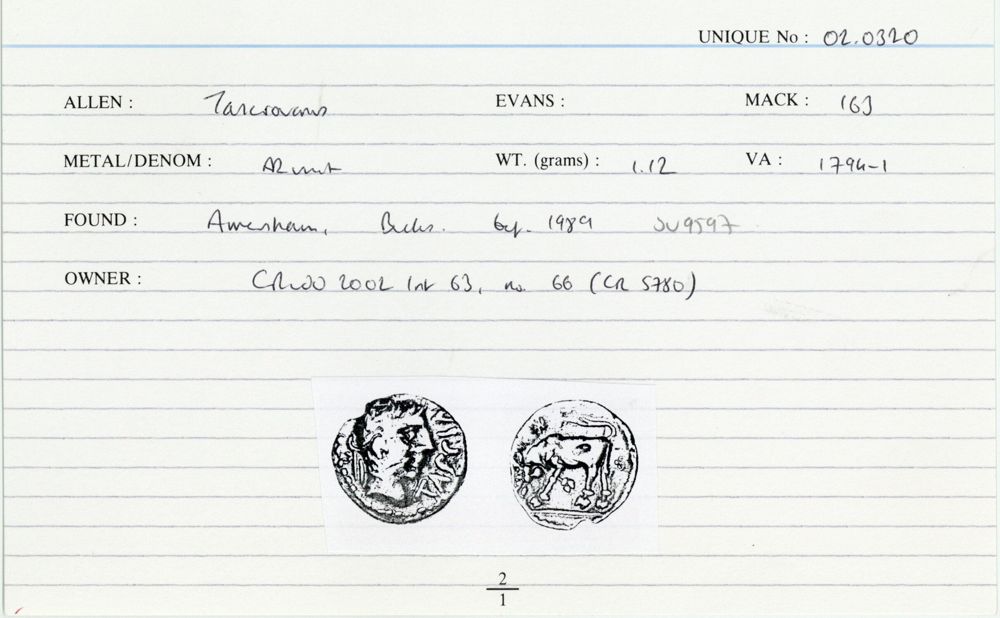 UNIQUE No : 02.0320
ALLEN : Tasciovanus EVANS : MACK : 163
METAL/DENOM : AR unit WT. (grams) : 1.12 VA : 1794-1
FOUND : Amersham, Bucks. by. 1989 SU9597
OWNER : CR 2002 list 63, no. 66 (CR 5780)
2
1